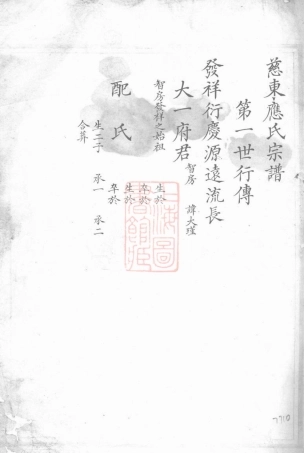 慈東應氏宗譜
第一世行傳
發祥衍慶源遠流長
大一府君 智房 諱大瑾
智房發祥之始祖
生於
卒於
配 氏
生於
卒於
生二子 承一 承二
合葬
7710